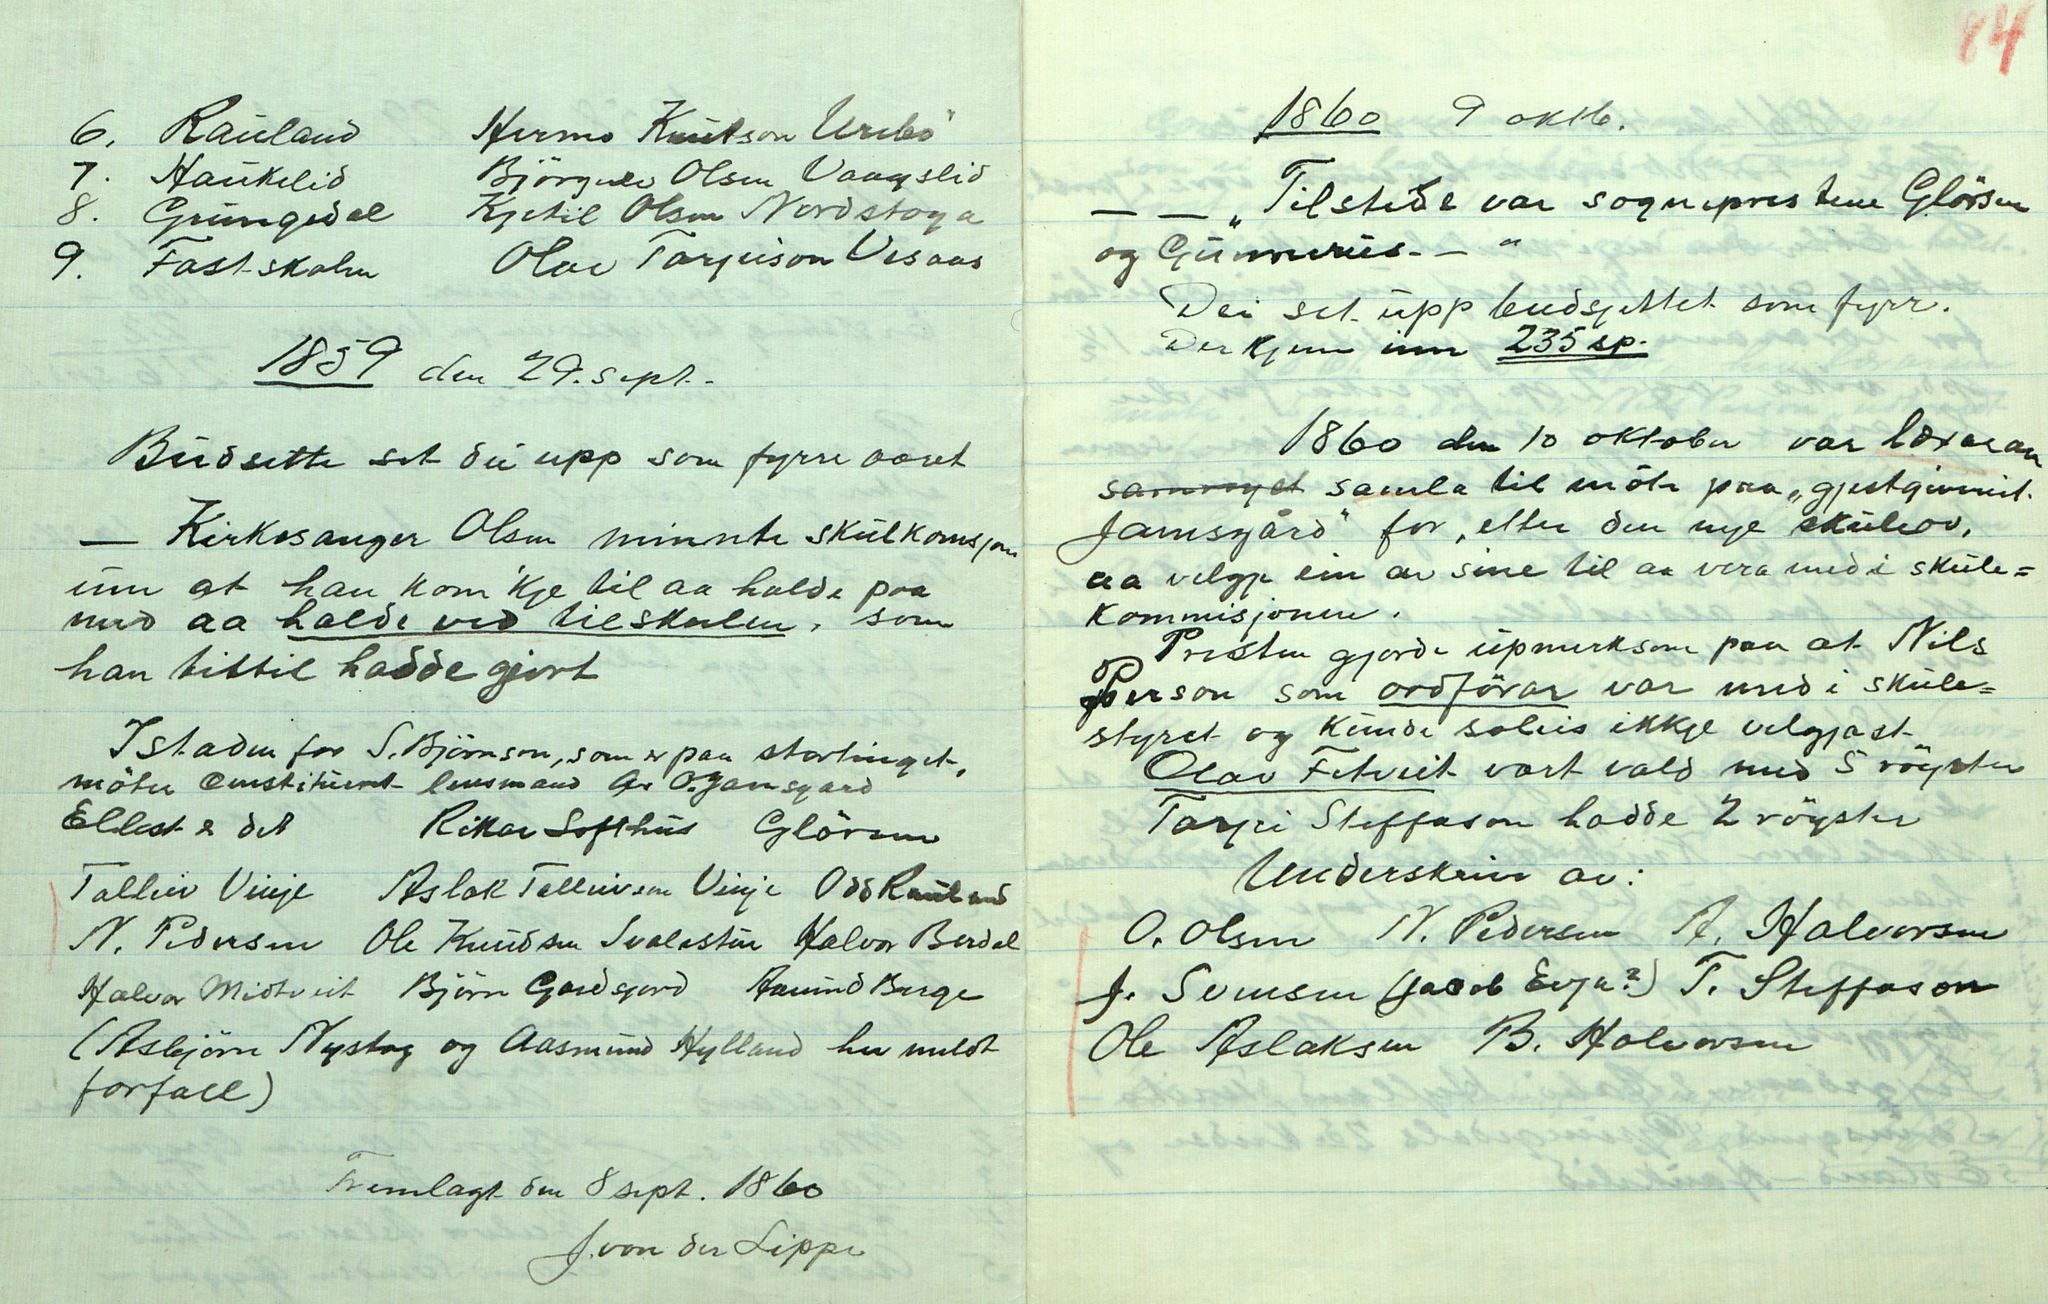 6. Rauland Hermo Knutson Uribö
7. Haukelid Björgulv Olsen Vaagslid
8. Grungedal Kjetil Olsen Nordstoga
9. Fast-skulen Olav Tarjeison Vesaas
1859 den 29. sept.
Budsette set dei upp som fyrre aaret
— Kirkesanger Olsen minnte skulkomsjon
um at han kom 'kje til aa halde paa
med aa halde ved tilskulen, som
han tittil hadde gjort
Istaden for S. Björnson, som er paa stortinget,
möter constitueret lensmand O. Jamsgard
Ellest er det Rikar Softhus Glörsen
Talleiv Vinje Aslak Talleivson Vinje Odd Rauland
N. Pedersen Ole Knudsen Svalastun Halvor Berdal
Halvor Midtveit Björn Gardsjord Aamund Berge
(Asbjörn Nystog og Aasmund Hylland hev meldt
forfall)
Fremlagt den 8 sept. 1860
J. von der Lippe
84
1860 9 oktb.
— — "Tilstede var sogneprestene Glörsen
og Gunnerus. — "
Dei set upp budsjettet som fyrr.
Der kjem inn 235 sp.
1860 den 10 oktober var læraran
samla til möte paa "gjestgiveriet
Jamsgård" for, etter den nye skulelov,
aa velgje ein av sine til aa vera med i skule=
kommisjonen.
Presten gjorde upmerksom paa at Nils
Pederson som ordförar var med i skule=
styret og kunde soleis ikkje velgjast
Olav Fetveit vart vald med 5 röyster
Tarjei Steffason hadde 2 röyster
Underskriv av:
O. Olsen N. Pedersen A. Halvorsen
J. Svensen (Jacob Evju?) T. Steffason
Ole Aslaksen B. Halvorsen